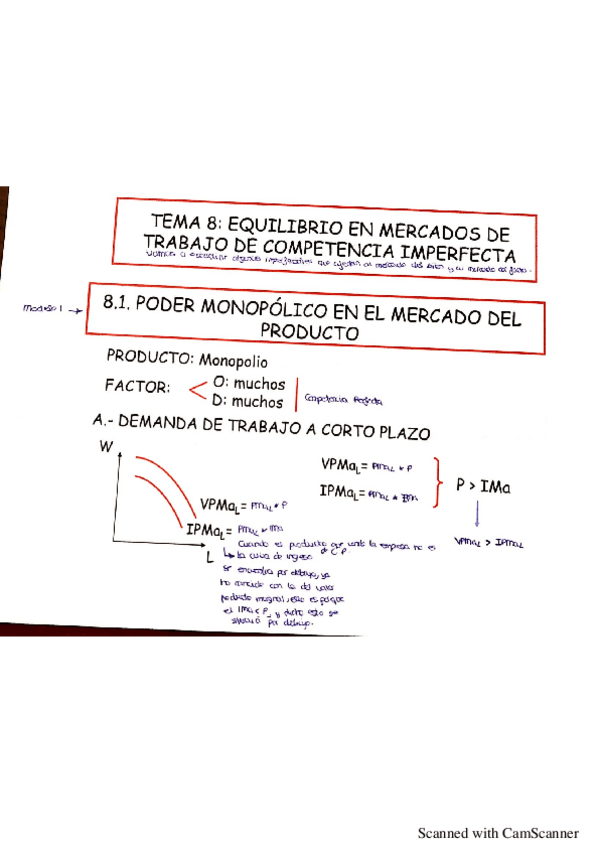 TEMA 8: EQUILIBRIO EN MERCADOS DE
TRABAJO DE COMPETENCIA IMPERFECTA
Vamos a que afectan al mercado del bien y al mercado del factor.
Modelo 1 →
8.1. PODER MONOPÓLICO EN EL MERCADO DEL
PRODUCTO
PRODUCTO: Monopolio
FACTOR:
O: muchos
D: muchos
Competencia Perfecta
A.- DEMANDA DE TRABAJO A CORTO PLAZO
W
L
VPMaL = PMaL * P
IPMaL = PMaL * IMa
VPMaL = PMaL * P
IPMaL = PMaL * IMa
P > IMa
VPMaL > IPMaL
Cuando el producto que vende la empresa no es
de CP
↳ la curva de ingreso
se encuentra por debajo, ya
no coincide con la del valor
producto marginal, esto es porque
el IMa < P, y dicho esto se
por debajo.
Scanned with CamScanner